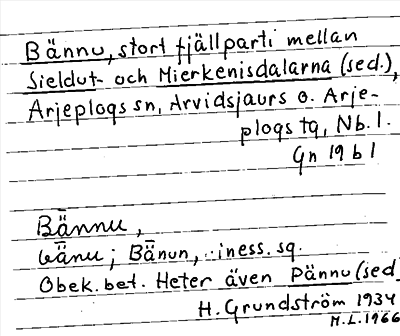 Bännu, stort fjällparti mellan
Sieldut- och Mierkenisdalarna (sed.),
Arjeplogs sn, Arvidsjaurs o. Arje-
plogs tg, Nb. l.
Gn 19 b 1
Bännu,
bänu; Bänun, iness. sg.
Obek. bet. Heter även Pännu (sed.
H. Grundström 1934
M.L. 1966